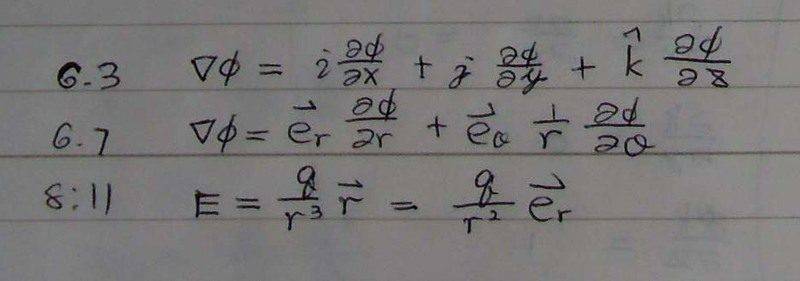 6.3 ∇ϕ = i ∂ϕ/∂x + j ∂ϕ/∂y + k̂ ∂ϕ/∂z
6.7 ∇ϕ = e⃗_r ∂ϕ/∂r + e⃗_θ 1/r ∂ϕ/∂θ
8:11 E = q/r³ r⃗ = q/r² e⃗_r